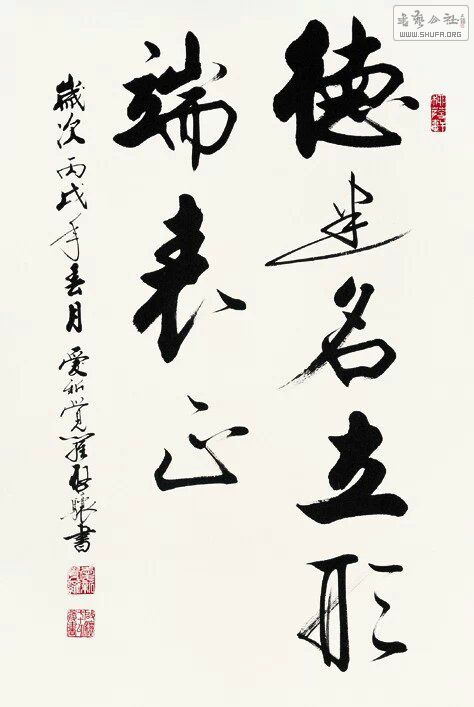 德建名立形
端表正
歲次丙戌年春月 愛新覺羅啟驤書
書藝公社
WWW.SHUFA.ORG